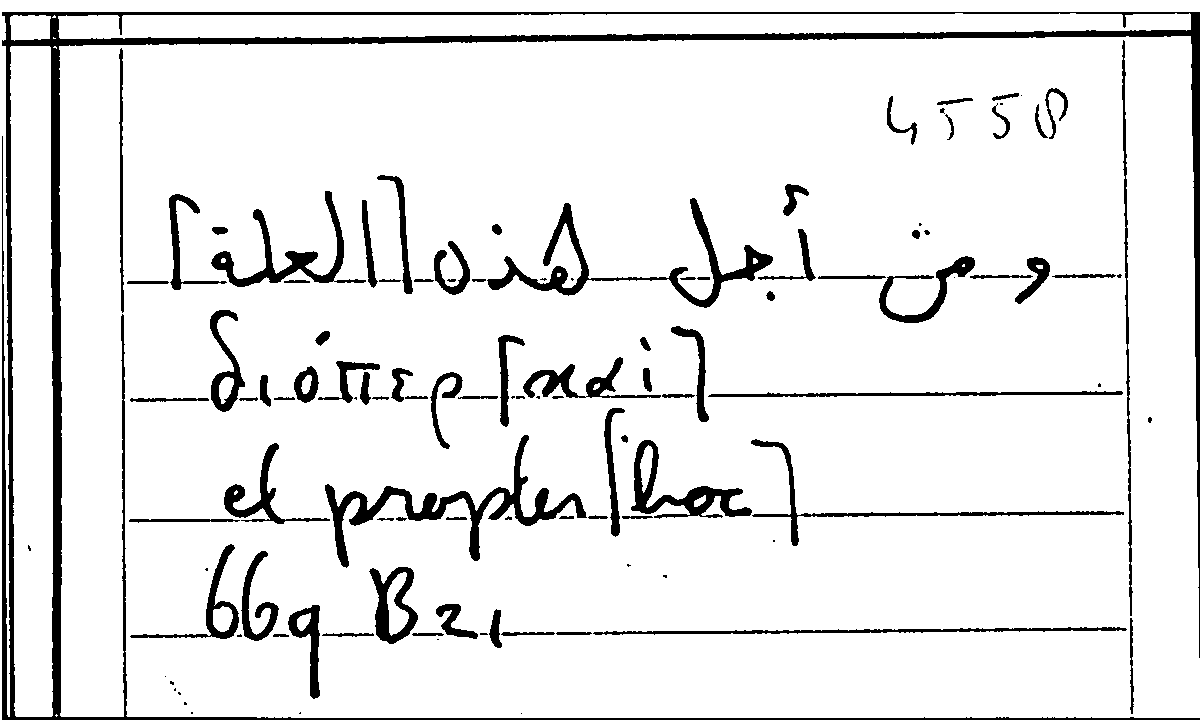 4558
ومن أجل هذه [العلة]
διόπερ [καί]
et propter [hoc]
669 B 21